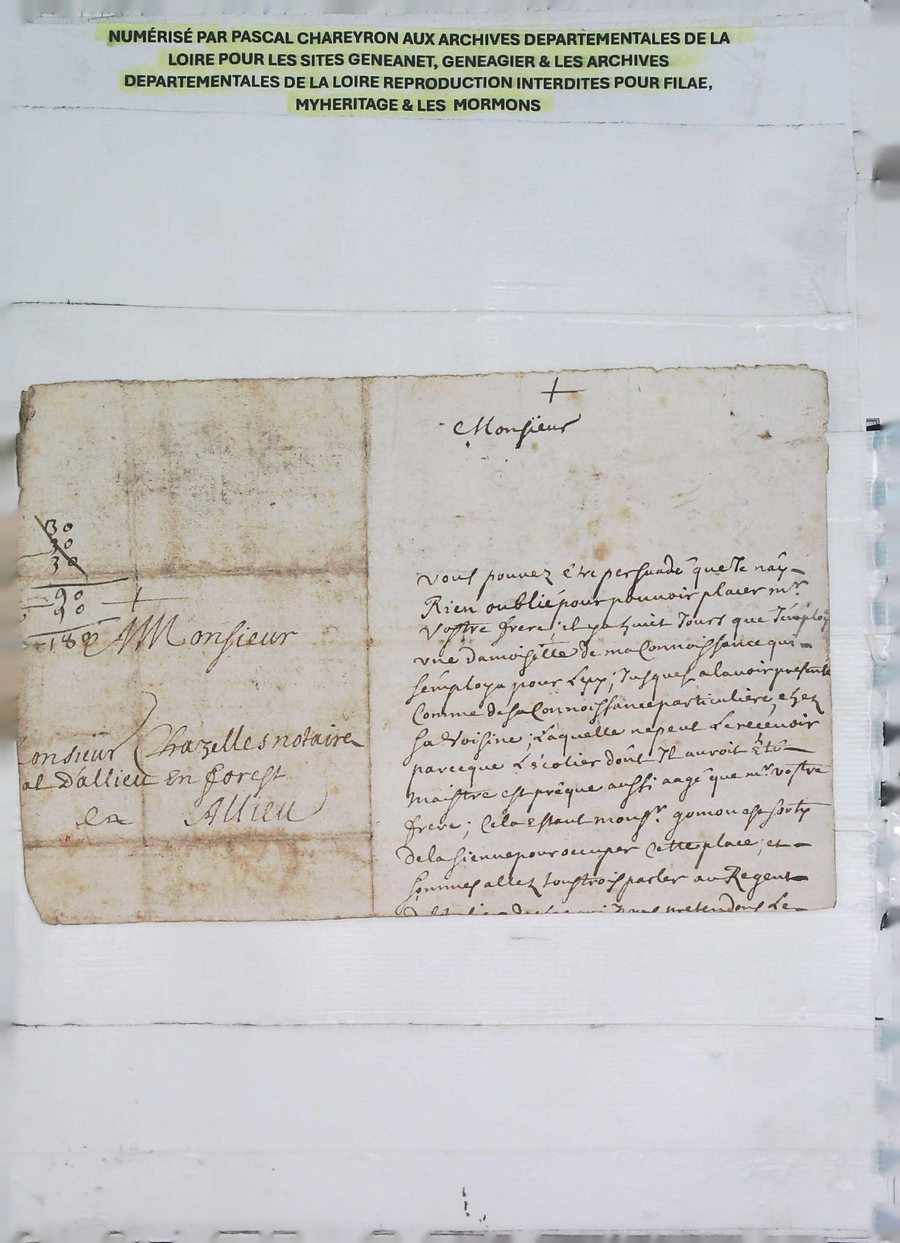 NUMÉRISÉ PAR PASCAL CHAREYRON AUX ARCHIVES DEPARTEMENTALES DE LA
LOIRE POUR LES SITES GENEANET, GENEAGIER & LES ARCHIVES
DEPARTEMENTALES DE LA LOIRE REPRODUCTION INTERDITES POUR FILAE,
MYHERITAGE & LES MORMONS
30
30
30
90
90
180
Monsieur
onsieur Chazelles notaire
al Dallieu En forest
Allieu
Monsieur
vous pouvez être persuadé que Je nay
Rien oublié pour pouvoir placer mr.
vostre frere; il ya huit Jours que
vne damoiselle de ma Connoissance qui
semploya pour Luy, Jusques alavoir presenté
Comme de sa Connoissance particuliere, chez
sa voisine; Laquelle ne peut Le recevoir
parceque L'écolier dont Il auroit Eté
Maistre est presque aussi aagé que mr. vostre
frere; Cela Estant monsr. gomon est sorty
de la sienne pour occuper Cette place; et
sommes allez tous trois parler au Regent
pretendons Le